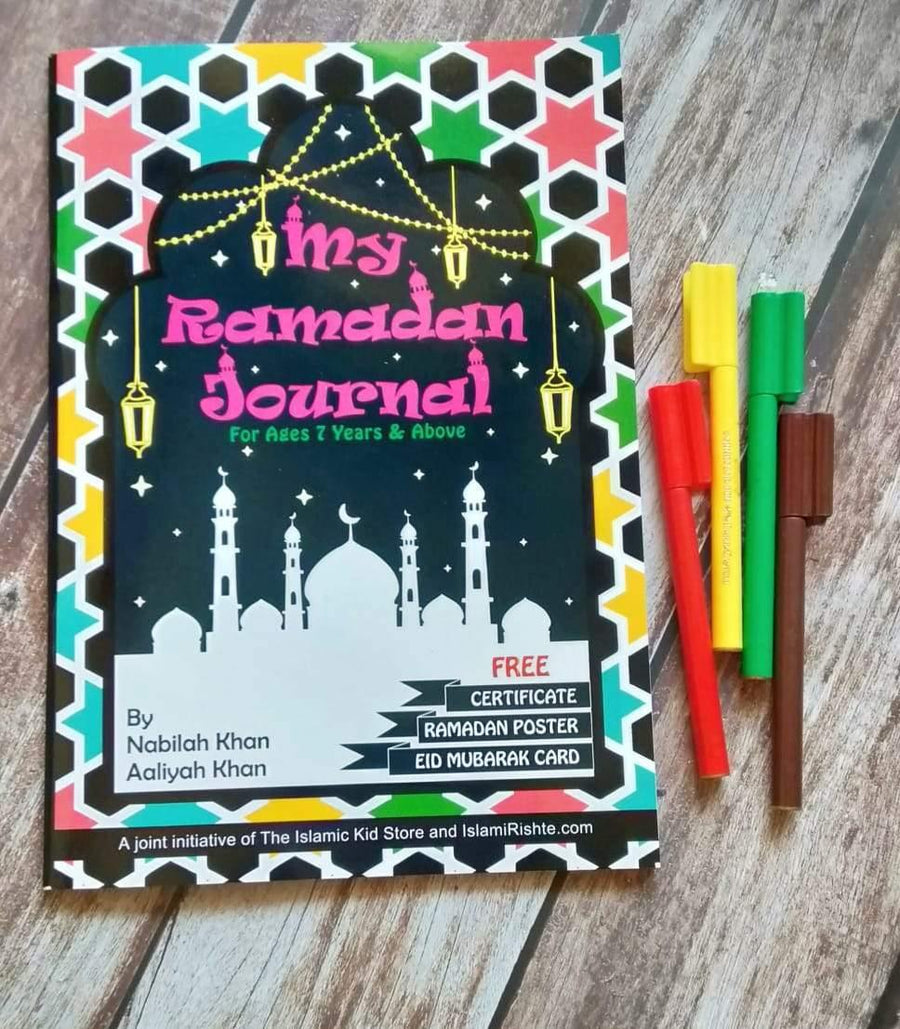 My
Ramadan
Journal
For Ages 7 Years & Above
FREE
CERTIFICATE
RAMADAN POSTER
EID MUBARAK CARD
By
Nabilah Khan
Aaliyah Khan
A joint initiative of The Islamic Kid Store and IslamiRishte.com